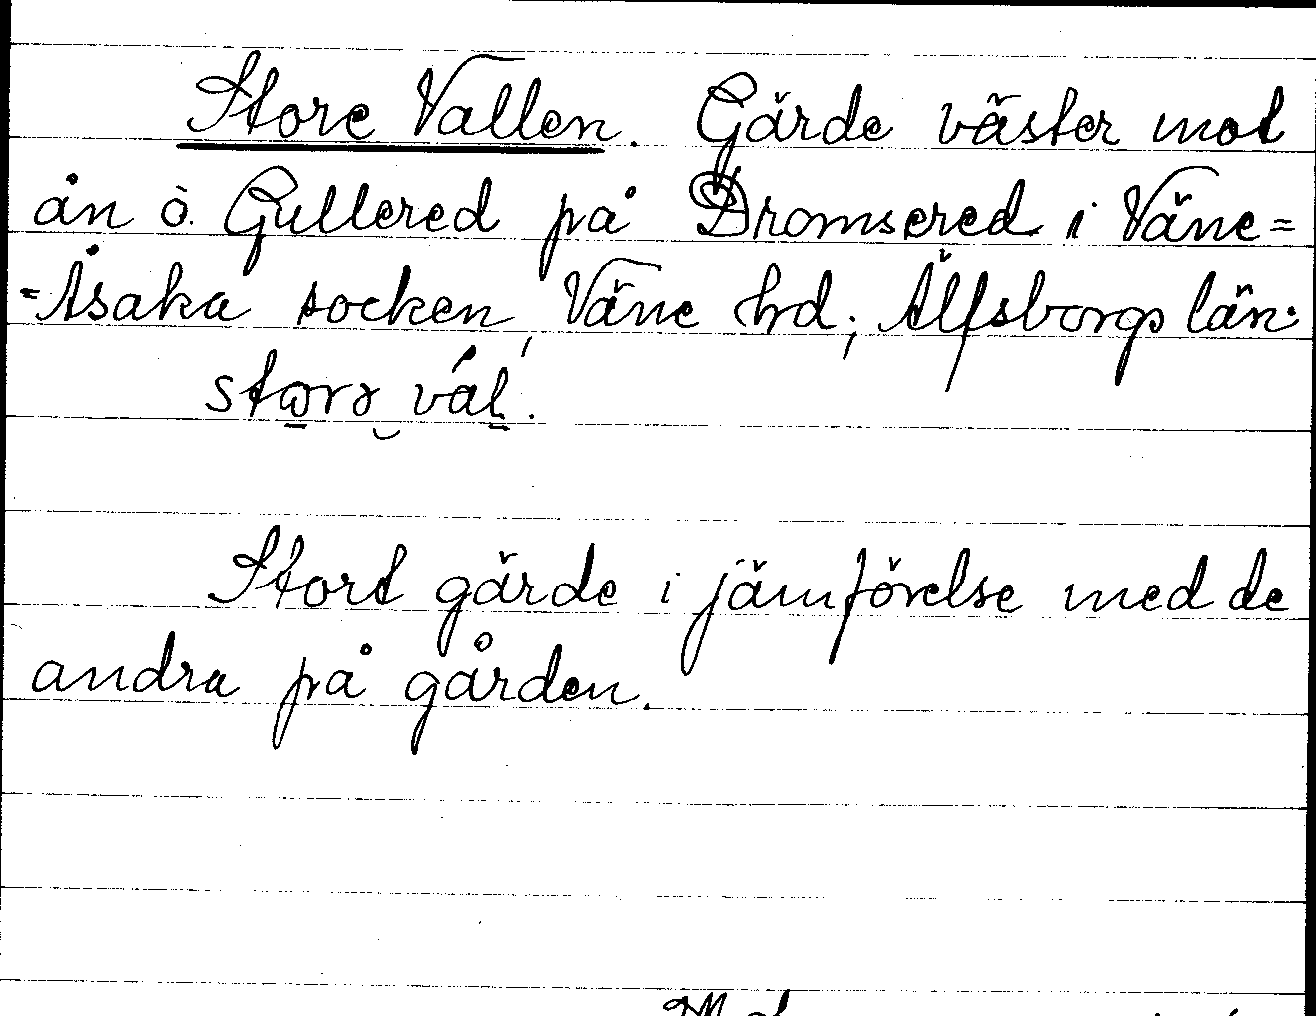 Store Vallen. Gärde väster mot
ån ö. Gullered på Dromsered i Väne=
=Åsaka socken, Väne hd; Älfsborgs län.
Stort gärde i jämförelse med de
andra på gården.